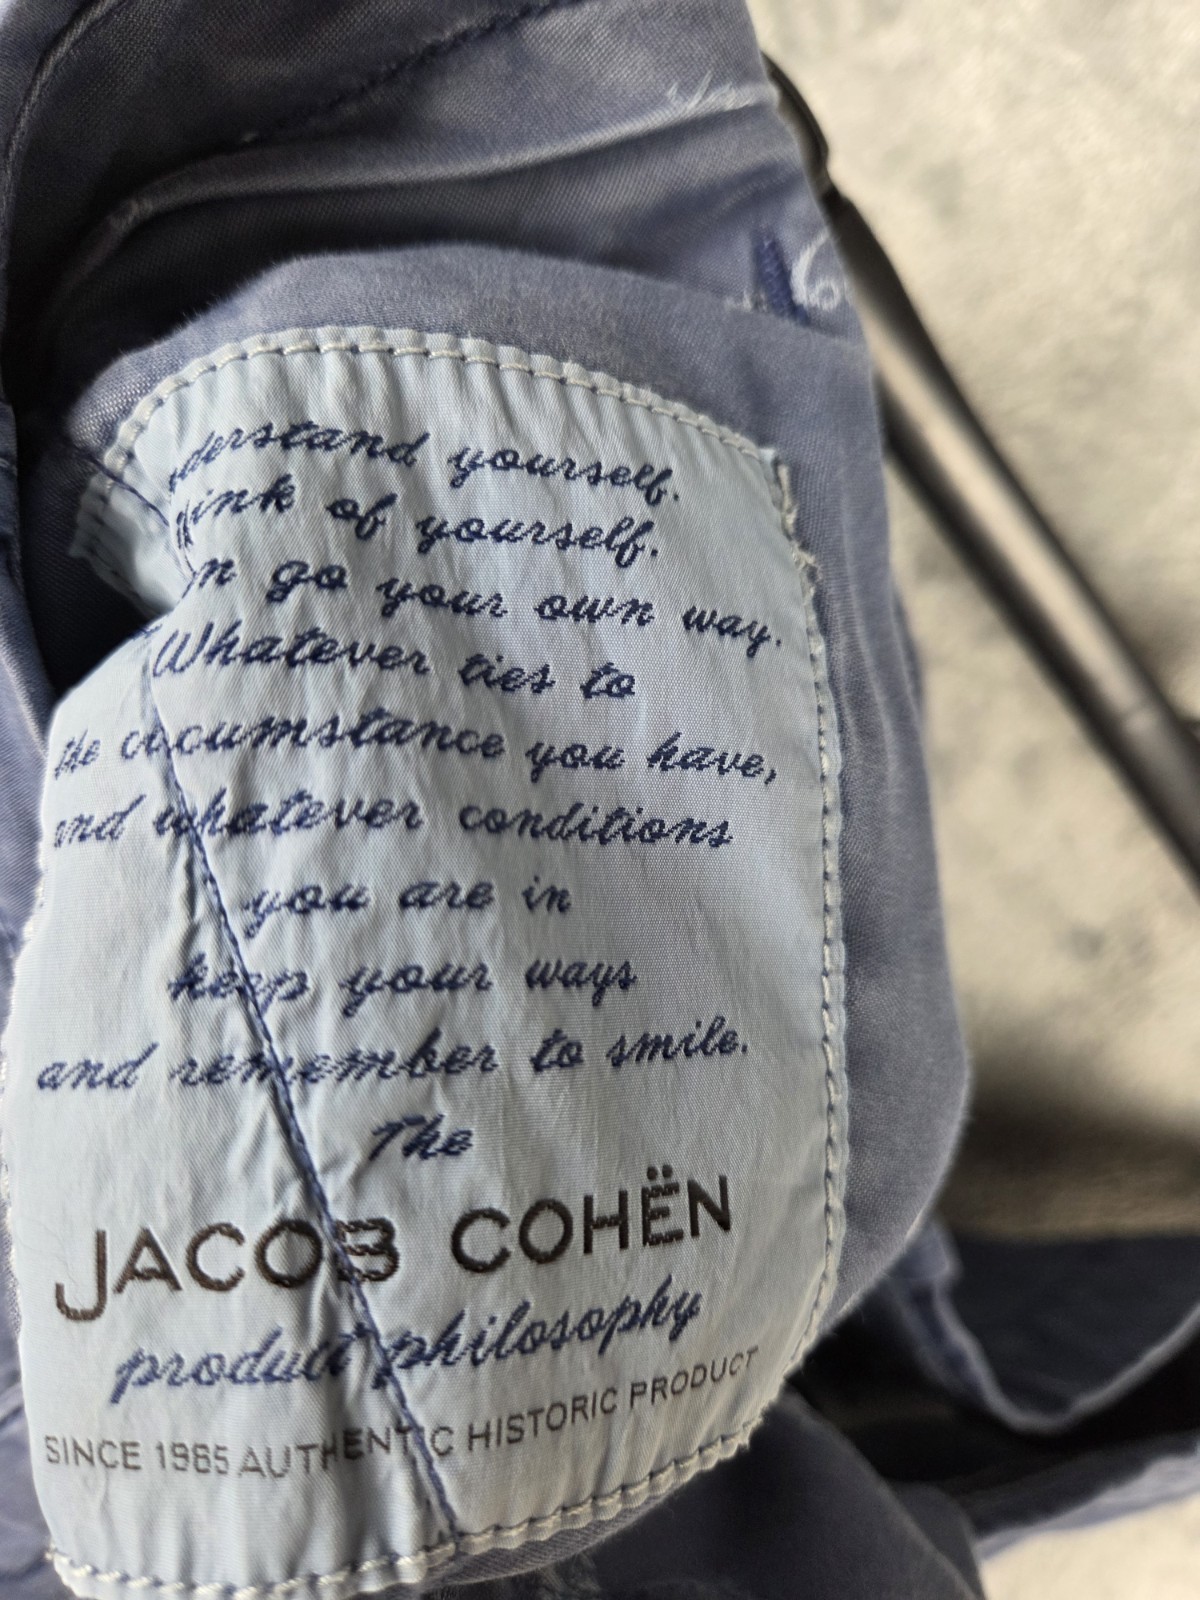 yourself.
of yourself.
go your own way.
Whatever ties to
the circumstance you have,
and whatever conditions
you are in
keep your ways
and remember to smile.
The
JACOB COHËN
product philosophy
SINCE 1985 AUTHENTIC HISTORIC PRODUCT